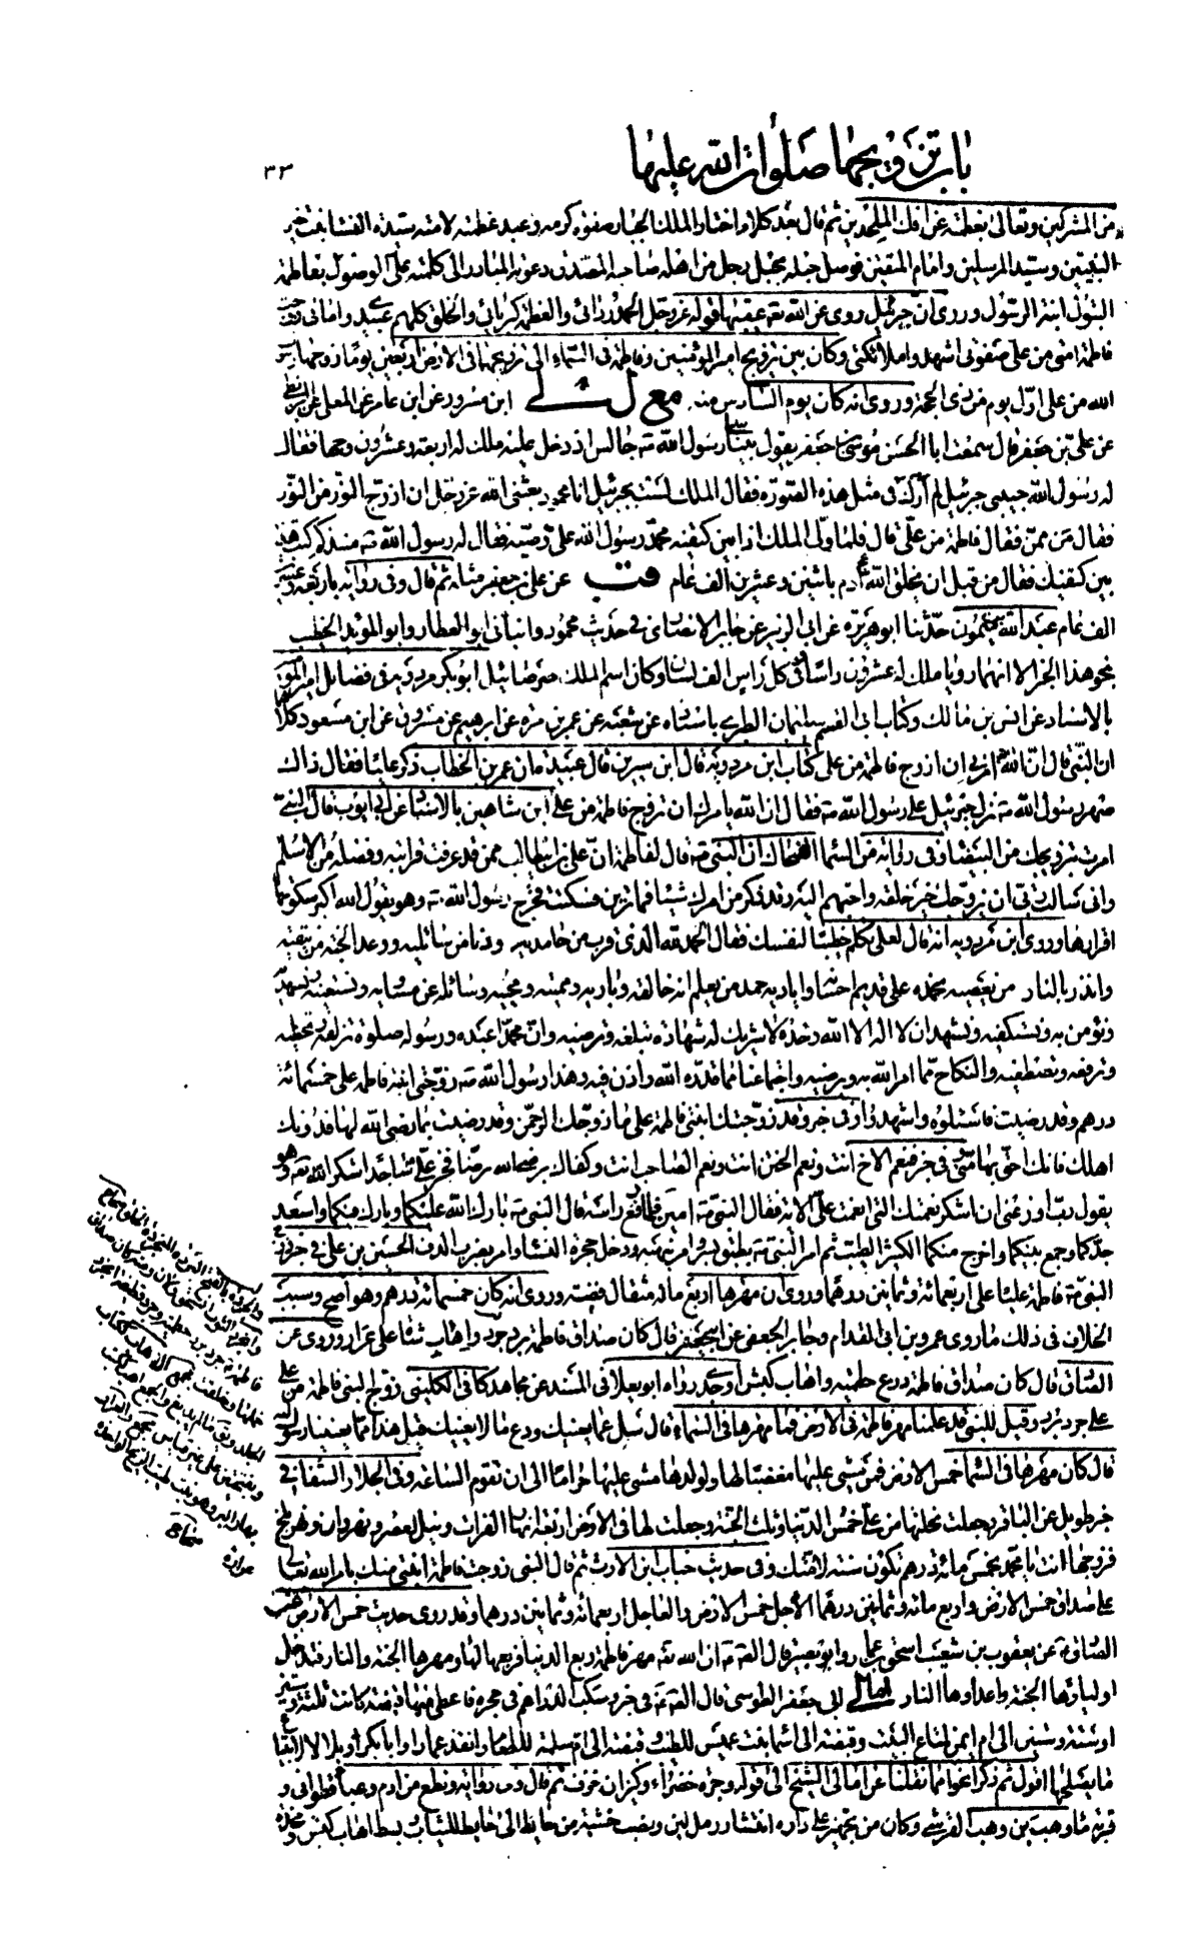 باب تزويجها صلوات الله عليها
٣٣
من المشركين وتعالى بعظمته عن افك الملحدين ثم قال بعد كلام اختار الملك الجبار صفوة كرمه وعبد عظمته لامته سيدة النساء بنت خير
النبيين وسيد المرسلين وامام المتقين فوصل حبله بحبل رجل من اهله صاحبه المصدق دعوته المبادر الى كلمته على الوصول بفاطمة
البتول ابنة الرسول وروى ان جبرئيل روى عن الله تعالى عقيبها قوله عز وجل الحمد ردائي والعظمة كبريائي والخلق كلهم عبيدي وامائي زوجت
فاطمة امتي من علي صفوتي اشهدوا ملائكتي وكان بين تزويج امير المؤمنين وفاطمة في السماء الى تزويجهما في الارض اربعين يوما زوجها رسول
الله من علي اول يوم من ذي الحجة وروى انه كان يوم السادس منه مع لى ابن مسرور عن ابن عامر عن المعلى عن البزنطي
عن علي بن جعفر قال سمعت ابا الحسن موسى بن جعفر يقول بينا رسول الله ص جالس اذ دخل عليه ملك له اربعة وعشرون وجها فقال
له رسول الله حبيبي جبرئيل لم ارك في مثل هذه الصورة فقال الملك لست بجبرئيل انا محمود بعثني الله عز وجل ان ازوج النور من النور
فقال من ممن فقال فاطمة من علي قال فلما ولى الملك اذا بين كتفيه محمد رسول الله علي وصيه فقال له رسول الله ص منذ كم كتب هذا
بين كتفيك فقال من قبل ان يخلق الله آدم باثنين وعشرين الف عام قب عن علي بن جعفر مثله ثم قال وفي رواية باربعة وعشرين
الف عام عبد الله بن ميمون حدثنا ابو هريرة عن ابي الزبير عن جابر الانصاري في حديث محمود وانبأني ابو العلا العطار وابو المؤيد الخطيب
بنحو هذا الخبر الا انهما رويا ملك له عشرون راسا في كل راس الف لسان وكان اسم الملك صرصائيل ابو بكر مردويه في فضائل امير المؤمنين
بالاسناد عن انس بن مالك وكتاب ابي القسم سليمان الطبري باسناده عن شعبة عن عمرو بن مرة عن ابرهيم عن مسروق عن ابن مسعود كلاهما
ان النبي قال ان الله امرني ان ازوج فاطمة من علي كتاب ابن مردويه قال ابن سيرين قال عبيدة ان عمر بن الخطاب ذكر عليا فقال ذاك
صهر رسول الله ص نزل جبرئيل على رسول الله ص فقال ان الله يامرك ان تزوج فاطمة من علي ابن شاهين بالاسناد عن ابي ايوب قال النبي
امرت بتزويجك من البيضاء وفي رواية من السماء الضحاك ان النبي ص قال لفاطمة ان علي بن ابيطالب ممن قد عرفت قرابته وفضله من الاسلام
واني سالت ربي ان يزوجك خير خلقه واحبهم اليه وقد ذكر من امرك شيئا فما ترين فسكتت فخرج رسول الله ص وهو يقول الله اكبر سكوتها
اقرارها وروى ابن مردويه انه قال لعلي تكلم خطيبا لنفسك فقال الحمد لله الذي قرب من حامديه ودنا من سائليه ووعد الجنة من يتقيه
وانذر بالنار من يعصيه نحمده على قديم احسانه واياديه حمد من يعلم انه خالقه وباريه ومميته ومحييه وسائله عن مساويه ونستعينه ونستهديه
ونؤمن به ونستكفيه ونشهد ان لا اله الا الله وحده لا شريك له شهادة تبلغه وترضيه وان محمدا عبده ورسوله صلوة تزلفه وتحظيه
وترفعه وتصطفيه والنكاح مما امر الله به ويرضيه واجتماعنا مما قدره الله واذن فيه وهذا رسول الله ص زوجني ابنته فاطمة على خمسمائة
درهم وقد رضيت فاسئلوه واشهدوا وفي خبر وقد زوجتك ابنتي فاطمة على ما زوجك الرحمن وقد رضيت بما رضي الله لها فدونك
اهلك فانك احق بها مني وفي خبر فنعم الاخ انت ونعم الختن انت ونعم الصاحب انت وكفاك برضى الله رضا فخر علي ساجدا شكرا لله تعالى وهو
يقول رب اوزعني ان اشكر نعمتك التي انعمت علي الاية فقال النبي ص امين فلما رفع راسه قال النبي ص بارك الله عليكما وبارك فيكما واسعد
جدكما وجمع بينكما واخرج منكما الكثير الطيب ثم امر النبي ص بطبق بسر وامر بنهبه ودخل حجرة النساء وامر بضرب الدف الحسين بن علي في خبر زوج
النبي ص فاطمة عليا على اربعمائة وثمانين درهما وروى ان مهرها اربع مائة مثقال فضة وروى انه كان خمسمائة درهم وهو اصح وسبب
الخلاف في ذلك ما روى عمرو بن ابي المقدام وجابر الجعفي عن ابي جعفر قال كان صداق فاطمة برد حبرة واهاب شاة على عرار وروى عن
الصادق قال كان صداق فاطمة درع حطمية واهاب كبش او جدي رواه ابو يعلى في المسند عن مجاهد كافي الكليني زوج النبي فاطمة من علي
على جرد برد وقيل للنبي قد علمنا مهر فاطمة في الارض فما مهرها في السماء قال سل عما يعنيك ودع ما لا يعنيك قيل هذا مما يعنينا يا رسول الله
قال كان مهرها في السماء خمس الارض فمن مشى عليها مغضبا لها ولولدها مشى عليها حراما الى ان تقوم الساعة وفي الجلاء والشفاء في
خبر طويل عن الباقر وجعلت نحلتها من علي خمس الدنيا وثلث الجنة وجعلت لها في الارض اربعة انهار الفرات ونيل مصر ونهروان ونهر بلخ
فزوجها انت يا محمد بخمس مائة درهم تكون سنة لامتك وفي حديث خباب بن الارت ثم قال النبي زوجت فاطمة ابنتي منك بامر الله تعالى
على صداق خمس الارض واربع مائة وثمانين درهما الآجل خمس الارض والعاجل اربعمائة وثمانين درهما وقد روى حديث خمس الارض عن
الصادق ع يعقوب بن شعيب اسحق بن عمار وابو بصير قال الصادق ع ان الله تعالى مهر فاطمة ربع الدنيا فربعها لها ومهرها الجنة والنار فتدخل
اوليائها الجنة واعدائها النار امالى ابي جعفر الطوسي قال الصادق ع في خبر وسكب الدراهم في حجره فاعطى منها قبضة كانت ثلثة وستين
او ستة وستين الى ام ايمن لمتاع البيت وقبضة الى اسماء بنت عميس للطيب وقبضة الى ام سلمة للطعام وانفذ عمارا وابا بكر وبلالا لابتياع
ما يصلحها اقول ثم ذكر نحوا مما نقلنا عن امالي الشيخ الى قوله وجرة خضراء وكيزان خزف ثم قال وفي رواية ونطع من ادم وعباء قطواني و
قربة ماء وهب بن وهب القرشي وكان من تجهيز علي داره انتشار رمل لين ونصب خشبة من حائط الى حائط للثياب وبسط اهاب كبش ومخدة